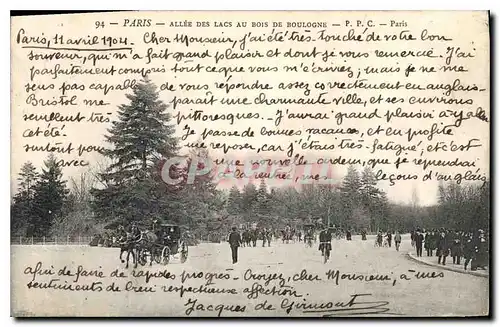 94 - PARIS - ALLÉE DES LACS AU BOIS DE BOULOGNE - P. P. C. - Paris
Paris, 11 avril 1904. Cher Monsieur, j'ai été très touché de votre bon
souvenir, qui m'a fait grand plaisir et dont je vous remercie. J'ai
parfaitement compris tout ce que vous m'écriviez; mais je ne me
sens pas capable de vous répondre assez correctement en anglais.
Bristol me parait une charmante ville, et ses environs
semblent très pittoresques. J'aurai grand plaisir à y aller
cet été. Je passe de bonnes vacances, et en profite
surtout pour me reposer, car j'étais très fatigué, et c'est
avec une nouvelle ardeur, que je reprendrai
à la rentrée, mes leçons d'anglais
CPARAMA
afin de faire de rapides progrès. Croyez, cher Monsieur, à mes
sentiments de bien respectueuse affection.
Jacques de Girmont